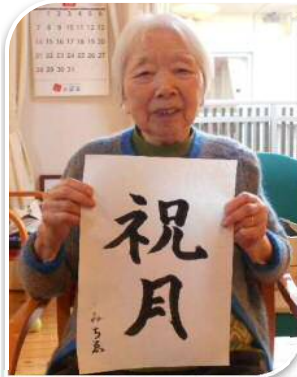 1 2 3 4 5 6
7 8 9 10 11 12 13
14 15 16 17 18 19 20
21 22 23 24 25 26 27
28 29 30 31
祝月
みちゑ